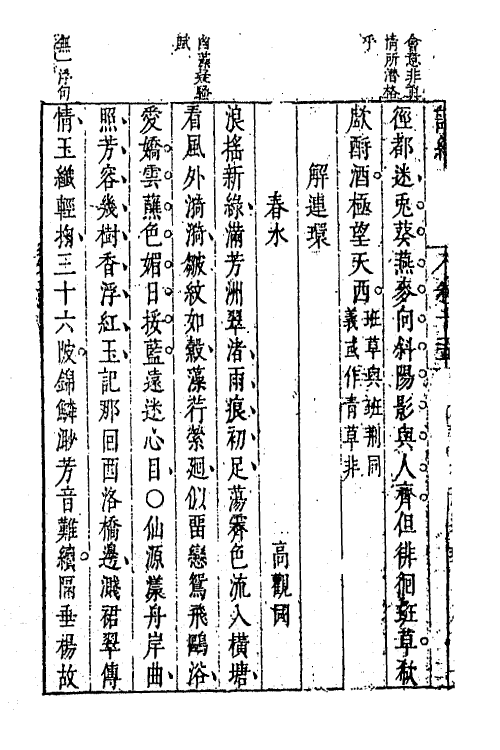 會意非鬪
情所潛格
乎
徑都迷兎葵燕麥向斜陽影與人齊但徘徊班草欷
歔酹酒極望天西
班草與班荆同
義或作青草非
解連環
春水
高觀國
浪搖新綠滿芳洲翠渚雨痕初足蕩霽色流入橫塘
看風外漪漪皺紋如縠藻荇縈廻似畱戀鴛飛鷗浴
愛嬌雲蘸色媚日挼藍遠迷心目○仙源漾舟岸曲
照芳容幾樹香浮紅玉記那回西洛橋邊濺裙翠傳
情玉纖輕掬三十六陂錦鱗渺芳音難續隔垂楊故
賦
無一浮句